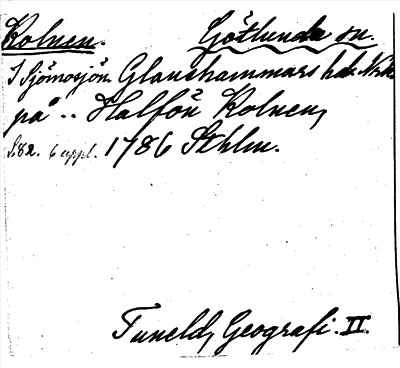 Kolnen. Götlunda sn.
I Sjömosjön Glanshammars hd. Nrk.
på .. Halfön Kolnen,
S. 82. 6 uppl. 1786 Sthlm.
Tuneld, Geografi. II.